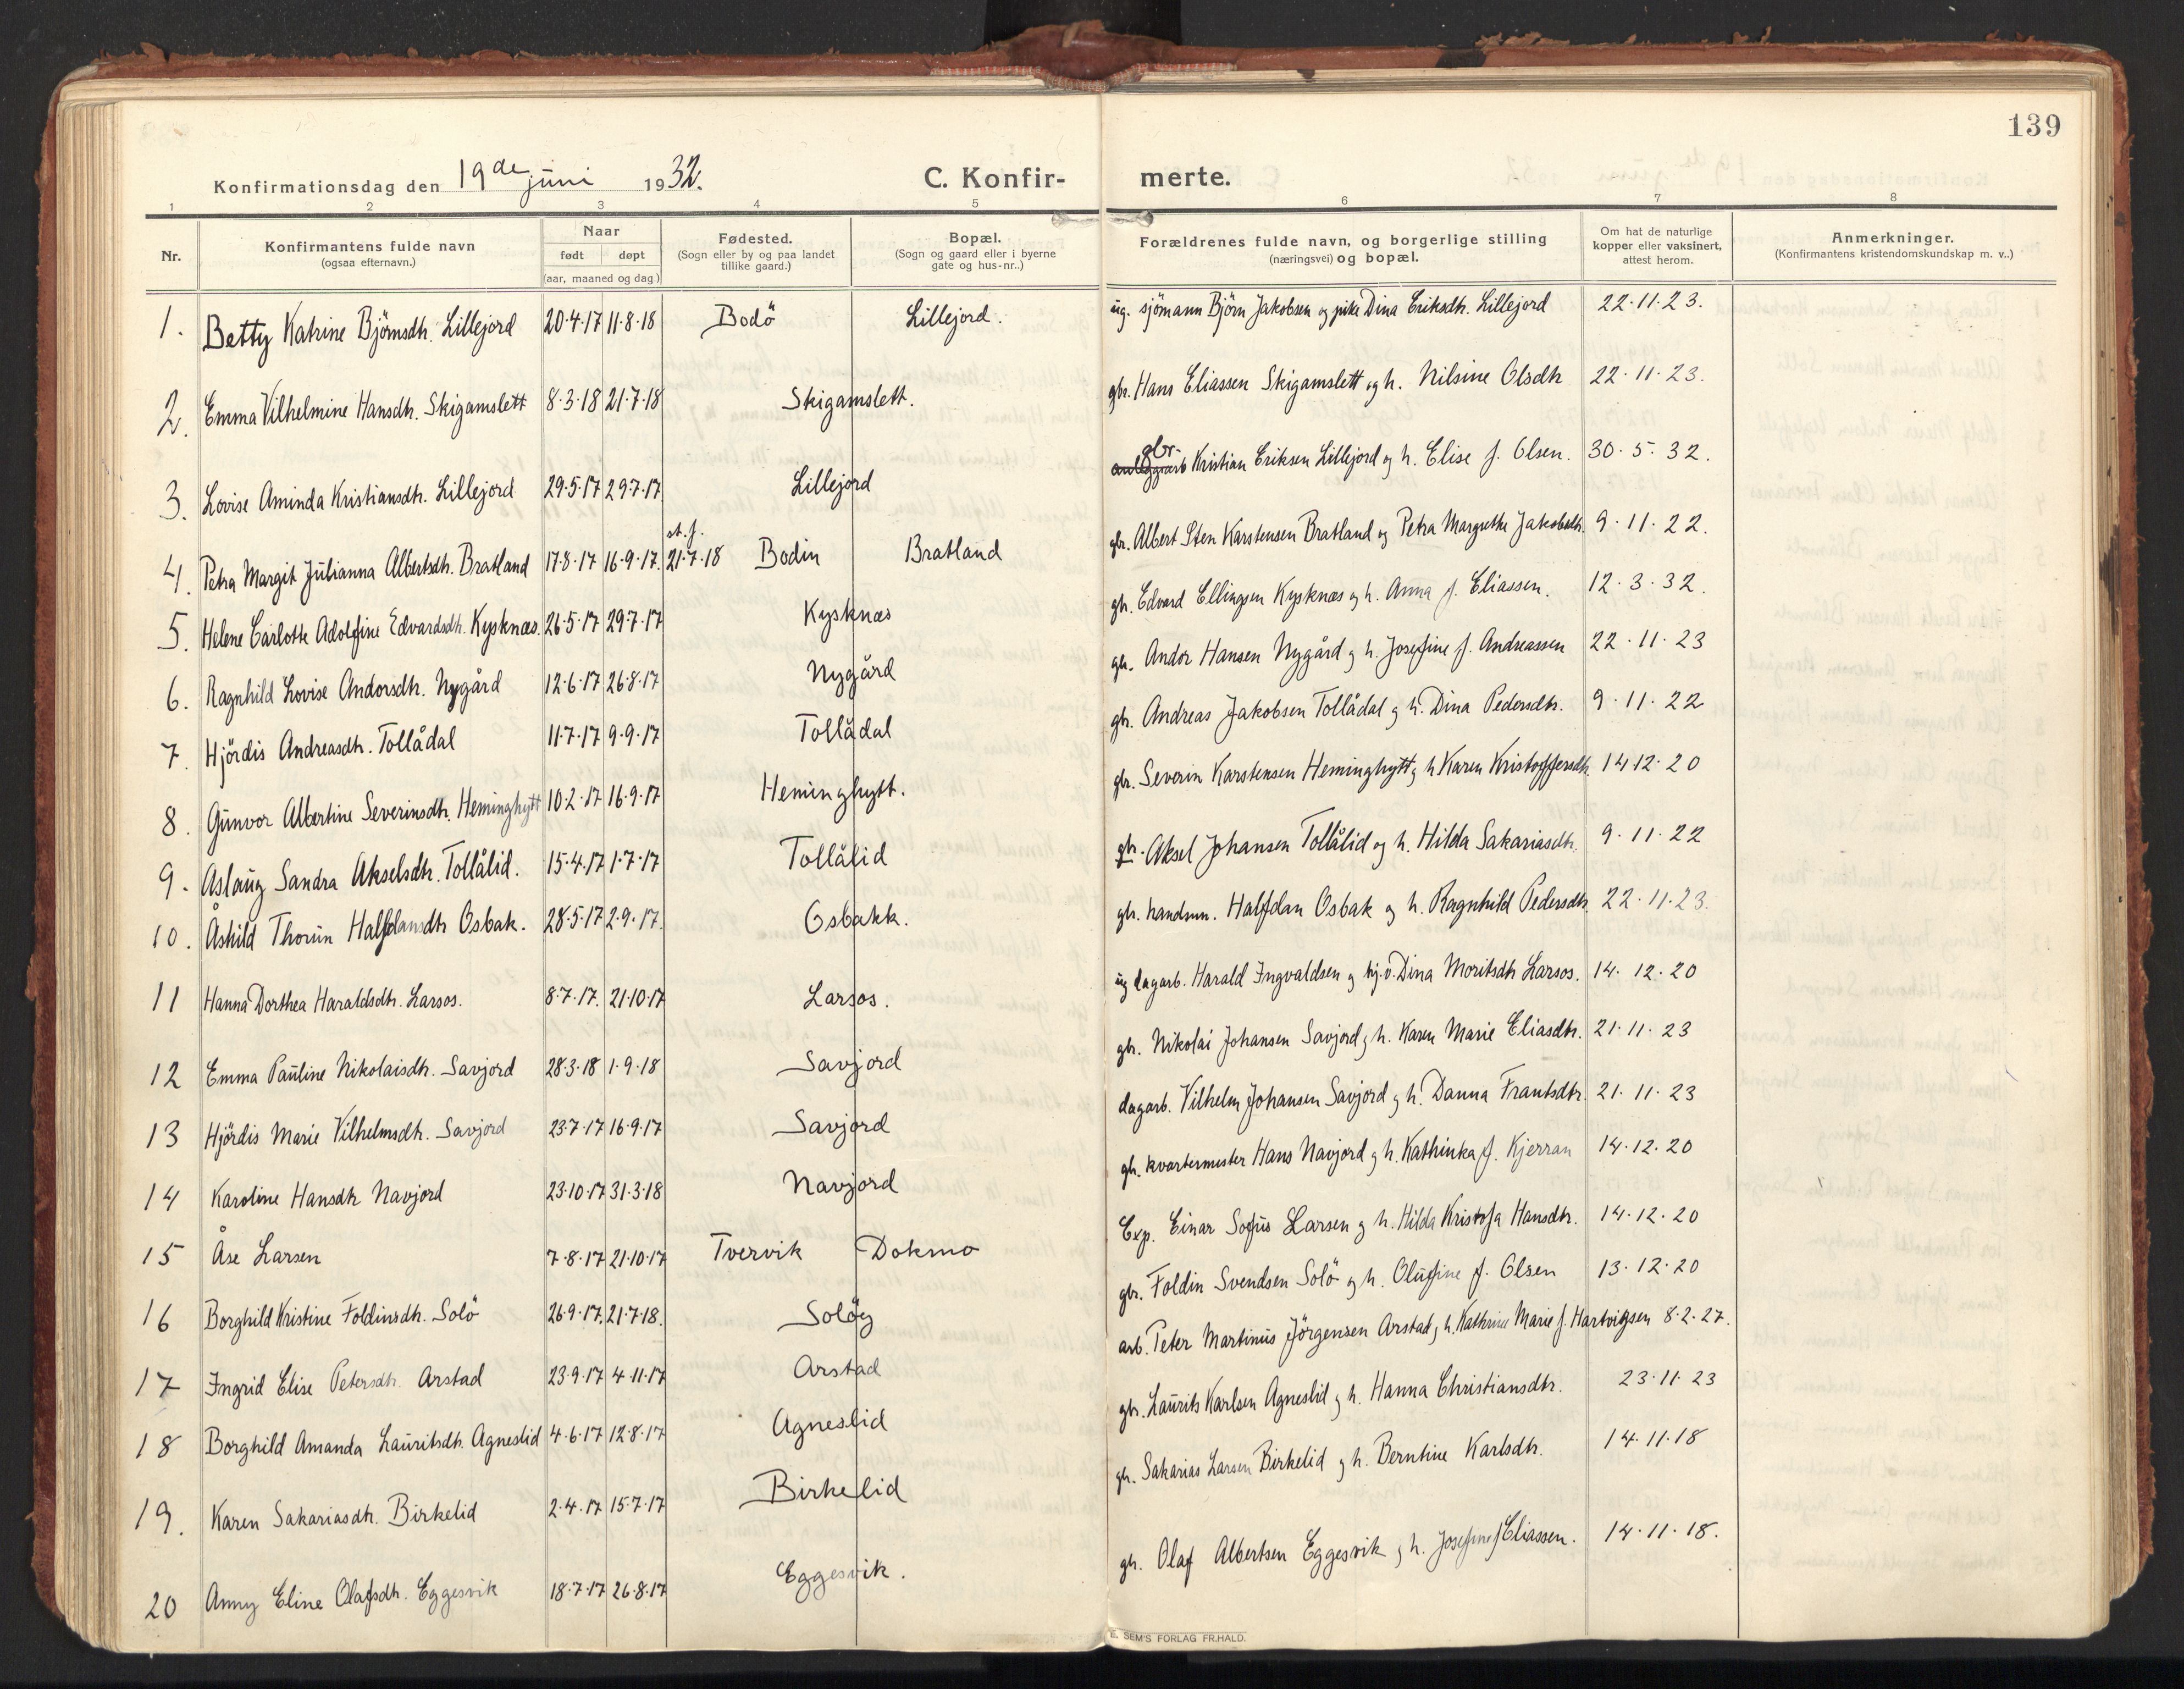 139
Konfirmationsdag den 19de juni 1932. C. Konfirmerte.
1 2 3 4 5 6 7 8
Nr. Konfirmantens fulde navn (ogsaa efternavn.) Naar født døpt (aar, maaned og dag) Fødested. (Sogn eller by og paa landet tillike gaard.) Bopæl. (Sogn og gaard eller i byerne gate og hus-nr..) Forældrenes fulde navn, og borgerlige stilling (næringsvei) og bopæl. Om hat de naturlige kopper eller vaksinert, attest herom. Anmerkninger. (Konfirmantens kristendomskundskap m. v..)
1. Betty Katrine Björnsdtr. Lillejord 20.4.17 11.8.18 Bodö Lillejord. ug. sjömann Björn Jakobsen og pike Dina Eriksdtr. Lillejord 22.11.23.
2. Emma Vilhelmine Hansdtr. Skigamslett 8.3.18 21.7.18 Skigamslett. gbr. Hans Eliassen Skigamslett og h. Nilsine Olsdtr 22.11.23.
3. Lovise Aminda Kristiansdtr. Lillejord 29.5.17 29.7.17 Lillejord gbr. Kristian Eriksen Lillejord og h. Elise f. Olsen. 30.5.32.
4. Petra Margit Julianna Albertsdtr. Bratland 17.8.17 16.9.17. st.f. 21.7.18 Bodin Bratland gbr. Albert Sten Karstensen Bratland og Petra Margrethe Jakobsdtr. 9.11.22.
5. Helene Carlotte Adolfine Edvardsdtr. Kysknæs. 26.5.17 29.7.17 Kysknæs gbr. Edvard Ellingsen Kysknæs og h. Anna f. Eliassen. 12.3.32.
6. Ragnhild Lovise Andorsdtr. Nygård 12.6.17 26.8.17 Nygård gbr. Andor Hansen Nygård og h. Josefine f. Andreassen 22.11.23
7. Hjördis Andreasdtr. Tollådal 11.7.17 9.9.17 Tollådal gbr. Andreas Jakobsen Tollådal og h. Dina Pedersdtr. 9.11.22
8. Gunvor Albertine Severinsdtr. Heminghytt 10.2.17 16.9.17 Heminghytt. gbr. Severin Karstensen Heminghytt og h. Karen Kristoffersdtr. 14.12.20
9. Åslaug Sandra Akselsdtr. Tollålid. 15.4.17 1.7.17 Tollålid gbr. Aksel Johansen Tollålid og h. Hilda Sakariasdtr. 9.11.22
10. Åshild Thorun Halfdansdtr Osbak. 28.5.17 2.9.17. Osbakk. gbr. handsm. Halfdan Osbak og h. Ragnhild Pedersdtr. 22.11.23.
11 Hanna Dorthea Haraldsdtr. Larsos. 8.7.17. 21.10.17 Larsos. ug dagarb. Harald Ingvaldsen og hj.v. Dina Moritsdtr Larsos. 14.12.20
12 Emma Pauline Nikolaisdtr. Savjord 28.3.18 1.9.18 Savjord gbr. Nikolai Johansen Savjord og h. Karen Marie Eliasdtr. 21.11.23
13 Hjördis Marie Vilhelmsdtr. Savjord 23.7.17 16.9.17 Savjord dagarb. Vilhelm Johansen Savjord og h. Danna Frantsdtr. 21.11.23
14 Karoline Hansdtr Navjord 23.10.17 31.3.18 Navjord gbr. kvartermester Hans Navjord og h. Kathinka f. Kjerran 14.12.20
15 Åse Larsen 7.8.17 21.10.17 Tvervik Dokmo Exp. Einar Sofus Larsen og h. Hilda Kristofa Hansdtr. 14.12.20
16 Borghild Kristine Foldinsdtr. Solö 26.9.17. 21.7.18. Solöy gbr. Foldin Svendsen Solö og h. Olufine f. Olsen 13.12.20
17 Ingrid Elise Petersdtr. Arstad 23.9.17 4.11.17 Arstad arb. Peter Martinus Jörgensen Arstad og h. Kathrine Marie f. Hartvigsen 8.2.27.
18 Borghild Amanda Lauritsdtr. Agneslid 4.6.17 12.8.17 Agneslid gbr. Laurits Karlsen Agneslid og h. Hanna Christiansdtr. 23.11.23
19. Karen Sakariasdtr. Birkelid 2.4.17 15.7.17 Birkelid gbr. Sakarias Larsen Birkelid og h. Berntine Karlsdtr. 14.11.18
20 Anny Eline Olafsdtr. Eggesvik 18.7.17 26.8.17 Eggesvik. gbr. Olaf Albertsen Eggesvik og h. Josefine f Eliassen. 14.11.18.
E. SEM'S FORLAG FR.HALD.